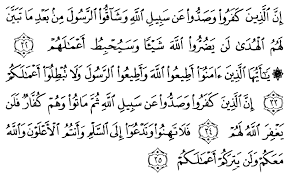 إِنَّ ٱلَّذِينَ كَفَرُوا۟ وَصَدُّوا۟ عَن سَبِيلِ ٱللَّهِ وَشَآقُّوا۟ ٱلرَّسُولَ مِنۢ بَعْدِ مَا تَبَيَّنَ
لَهُمُ ٱلْهُدَىٰ لَن يَضُرُّوا۟ ٱللَّهَ شَيْـًٔا وَسَيُحْبِطُ أَعْمَـٰلَهُمْ
۞ يَـٰٓأَيُّهَا ٱلَّذِينَ ءَامَنُوٓا۟ أَطِيعُوا۟ ٱللَّهَ وَأَطِيعُوا۟ ٱلرَّسُولَ وَلَا تُبْطِلُوٓا۟ أَعْمَـٰلَكُمْ
٣٣ إِنَّ ٱلَّذِينَ كَفَرُوا۟ وَصَدُّوا۟ عَن سَبِيلِ ٱللَّهِ ثُمَّ مَاتُوا۟ وَهُمْ كُفَّارٌ فَلَن
يَغْفِرَ ٱللَّهُ لَهُمْ ٣٤ فَلَا تَهِنُوا۟ وَتَدْعُوٓا۟ إِلَى ٱلسَّلْمِ وَأَنتُمُ ٱلْأَعْلَوْنَ وَٱللَّهُ
مَعَكُمْ وَلَن يَتِرَكُمْ أَعْمَـٰلَكُمْ ٣٥